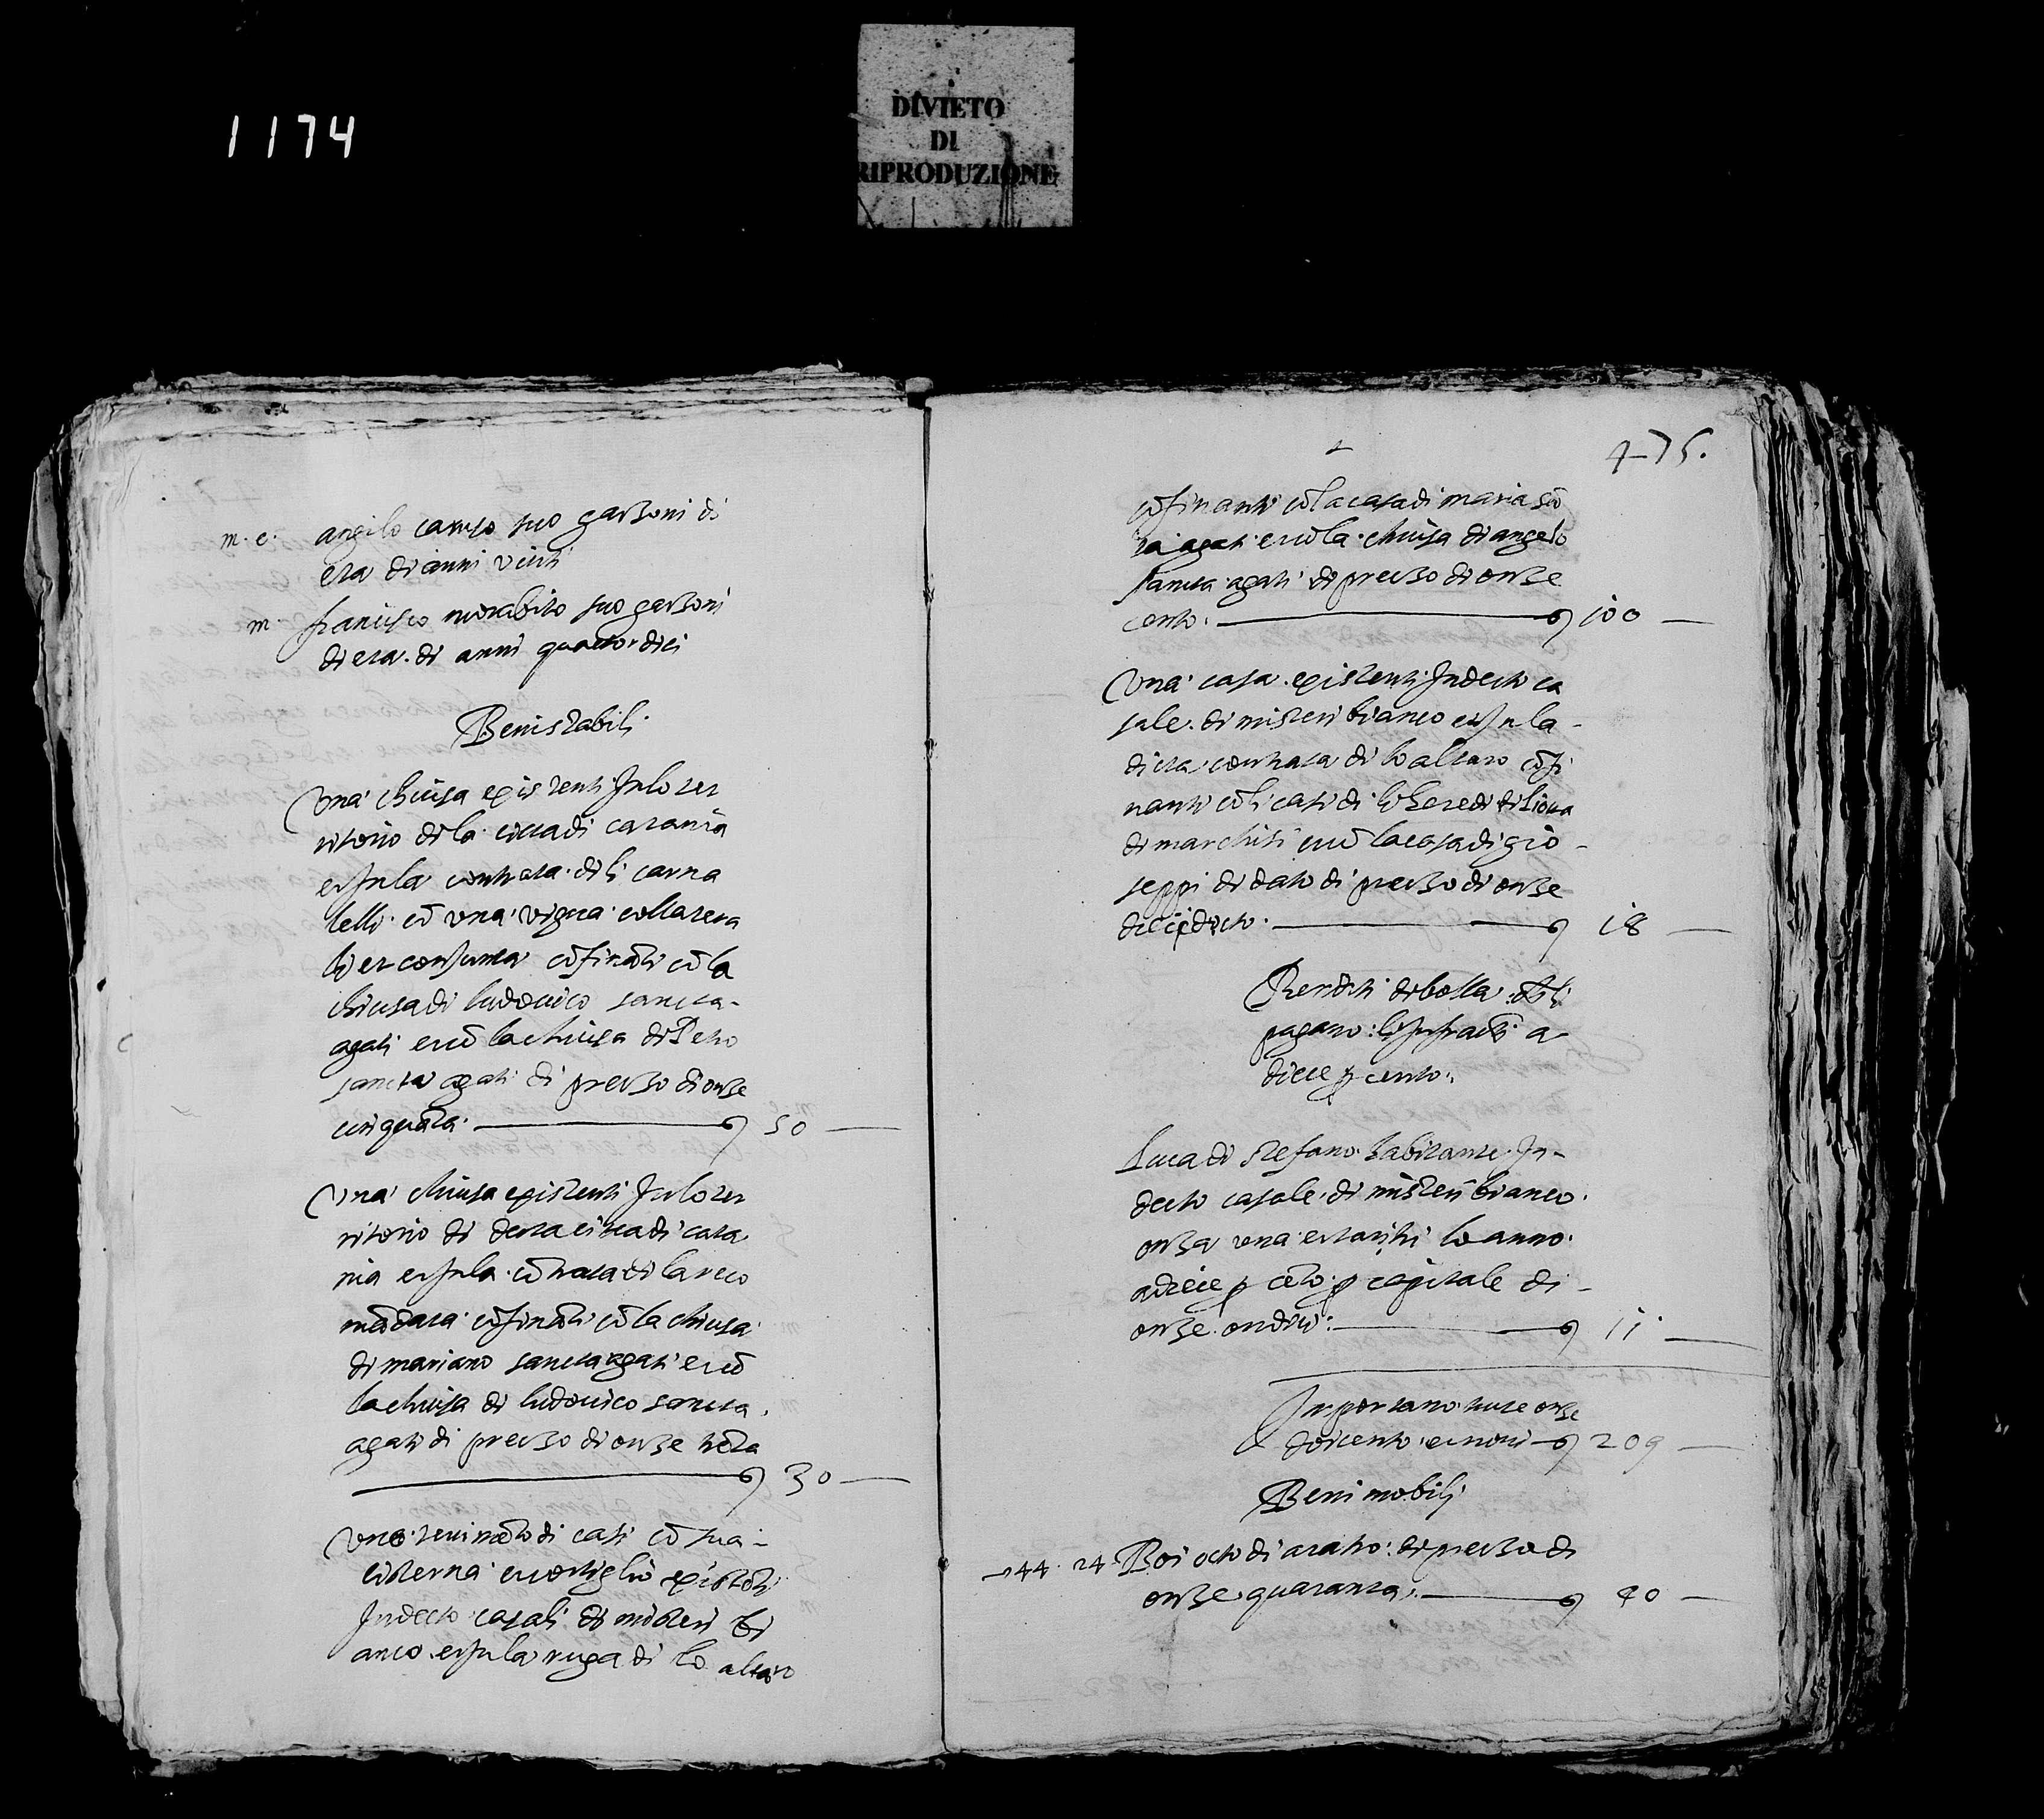 1174
DIVIETO
DI
RIPRODUZIONE
m. e. angilo caruso suo garzoni di
eta di anni vinti
m. francisco morabito suo garzoni
di eta di anni quattordici
Beni stabili
Una chiusa existenti In lo ter
ritorio di la citta di catania
et In la contrata di li carna
telli cū una vigna collatera
li et coniunta cōfināti cū la
chiusa di ludovico sancta
agati et cū la chiusa di Petro
sancta agati di prezzo di onze
cinquāta 50
Una chiusa existenti In lo ter
ritorio di detta citta di cata
nia et In la cōtrata di la reco
mādata cōfināti cū la chiusa
di mariano sancta agati et cū
la chiusa di ludovico sancta
agati di prezzo di onze trēta
30
Uno tenimēto di casi cū sua
cisterna et cortiglio existēti
In decto casali di misteri bi
anco et In la ruga di lo altaro
475.
cōfinanti cū la casa di maria sā
ta agati et cū la chiusa di angelo
sancta agati di prezzo di onze
cento. 100
Una casa existenti In decto ca
sale di misteri bianco et In la
dicta contrata di lo altaro cōfi
nanti cū li casi di li heredi di
di marchisi et cū la casa di gio
seppi di dato di prezzo di onze
deciidocto. 18
Renditi di bolla chi li
pagano li Infracti a
diece p cento.
Luca di stefano habitante In
decto casale di misteri bianco
onza una et tarì tri lo anno
a diece p cēto p capitale di
onze ondici: 11.
Importano tutte onze
doicento et novi 209
Beni mobili
144. 24 Boi octo di aratro: di prezzo di
onze quaranta. 40